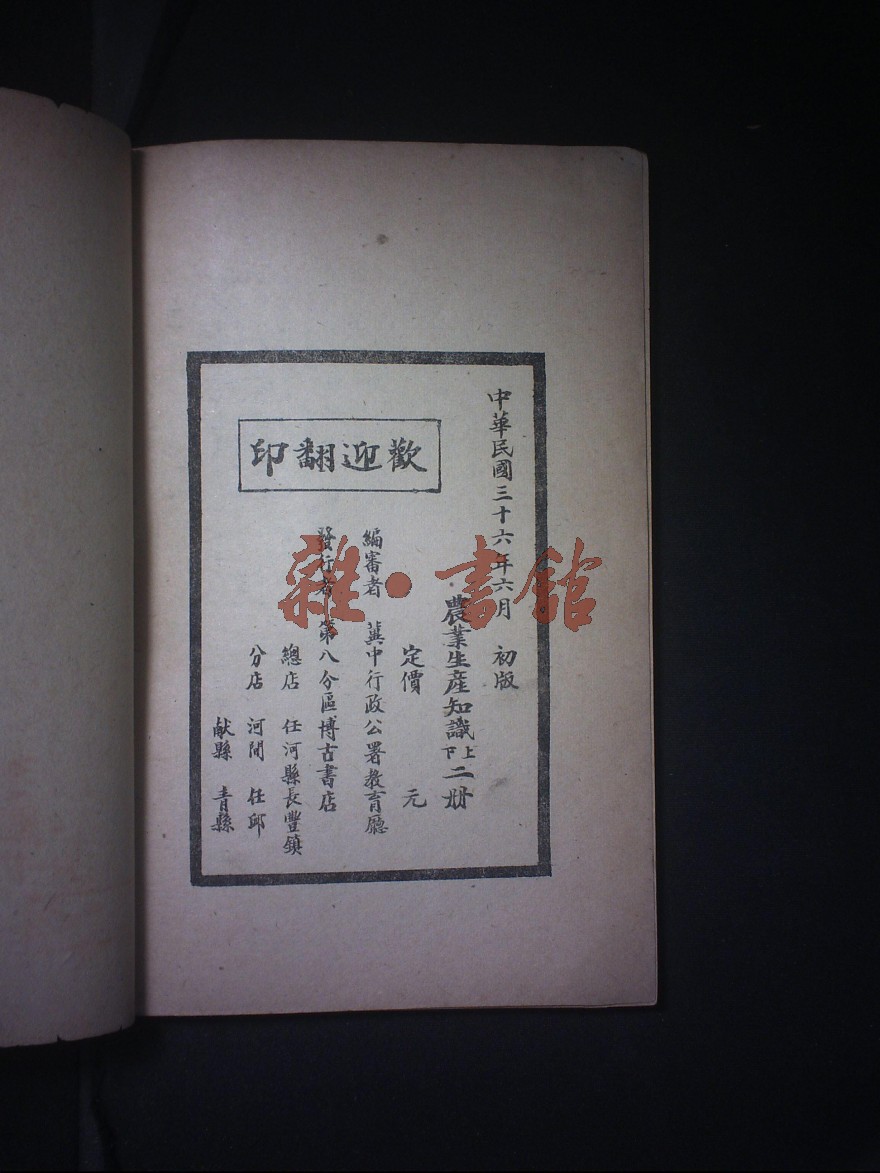 中華民國三十六年六月　初版
農業生産知識上下二册
定價　元
編審者　冀中行政公署教育廳
發行者　第八分區博古書店
總店　任河縣長豐鎮
分店　河間　任邱
献縣　青縣
歡迎翻印
雜·書館